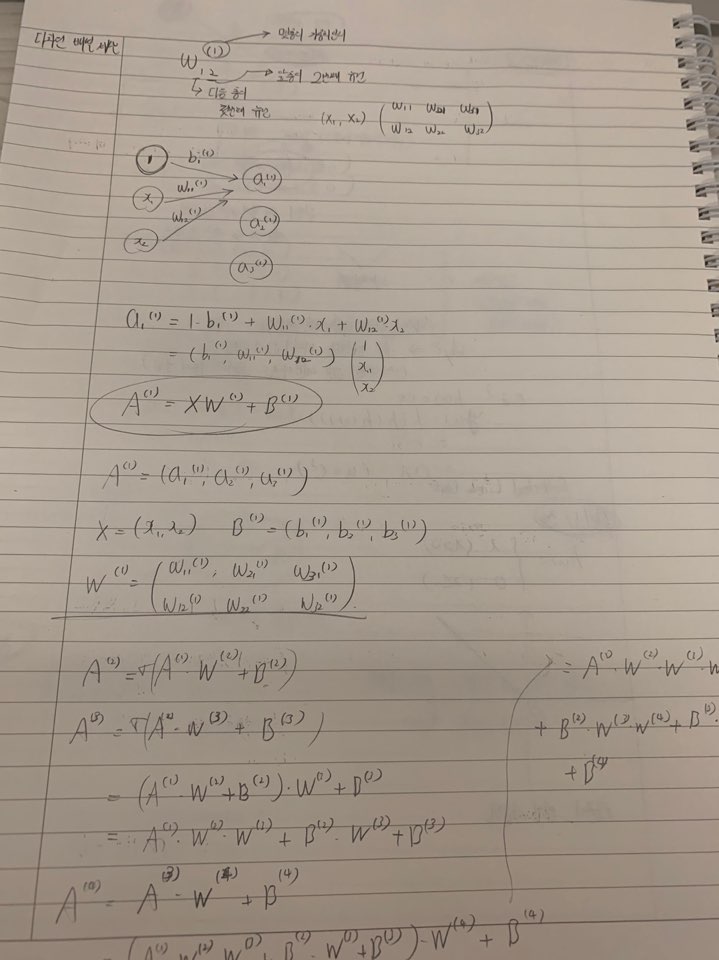 다차원 배열 계산
w₁₂⁽¹⁾ → 몇층의 가중치인지
→ 앞층의 2번째 뉴런
→ 다음 층의
몇번째 뉴런
(x₁, x₂) ( w₁₁ w₂₁ w₃₁
w₁₂ w₂₂ w₃₂ )
1 b₁⁽¹⁾ a₁⁽¹⁾
x₁ w₁₁⁽¹⁾
w₁₂⁽¹⁾ a₂⁽¹⁾
x₂
a₃⁽¹⁾
a₁⁽¹⁾ = 1·b₁⁽¹⁾ + w₁₁⁽¹⁾·x₁ + w₁₂⁽¹⁾·x₂
= (b₁⁽¹⁾, w₁₁⁽¹⁾, w₁₂⁽¹⁾) ( 1
x₁
x₂ )
A⁽¹⁾ = XW⁽¹⁾ + B⁽¹⁾
A⁽¹⁾ = (a₁⁽¹⁾, a₂⁽¹⁾, a₃⁽¹⁾)
X = (x₁, x₂) B⁽¹⁾ = (b₁⁽¹⁾, b₂⁽¹⁾, b₃⁽¹⁾)
W⁽¹⁾ = ( w₁₁⁽¹⁾, w₂₁⁽¹⁾ w₃₁⁽¹⁾
w₁₂⁽¹⁾ w₂₂⁽¹⁾ w₁₂⁽¹⁾ )
A⁽²⁾ = σ(A⁽¹⁾·W⁽²⁾ + B⁽²⁾)
A⁽³⁾ = σ(A⁽²⁾·W⁽³⁾ + B⁽³⁾)
= (A⁽¹⁾·W⁽²⁾ + B⁽²⁾)·W⁽³⁾ + B⁽³⁾
= A⁽¹⁾·W⁽²⁾·W⁽³⁾ + B⁽²⁾·W⁽³⁾ + B⁽³⁾
A⁽⁴⁾ = A⁽³⁾·W⁽⁴⁾ + B⁽⁴⁾
= (A⁽¹⁾ W⁽²⁾ W⁽³⁾ + B⁽²⁾·W⁽³⁾ + B⁽³⁾)·W⁽⁴⁾ + B⁽⁴⁾
= A⁽¹⁾·W⁽²⁾·W⁽³⁾·W
+ B⁽²⁾·W⁽³⁾·W⁽⁴⁾ + B⁽³⁾·
+ B⁽⁴⁾